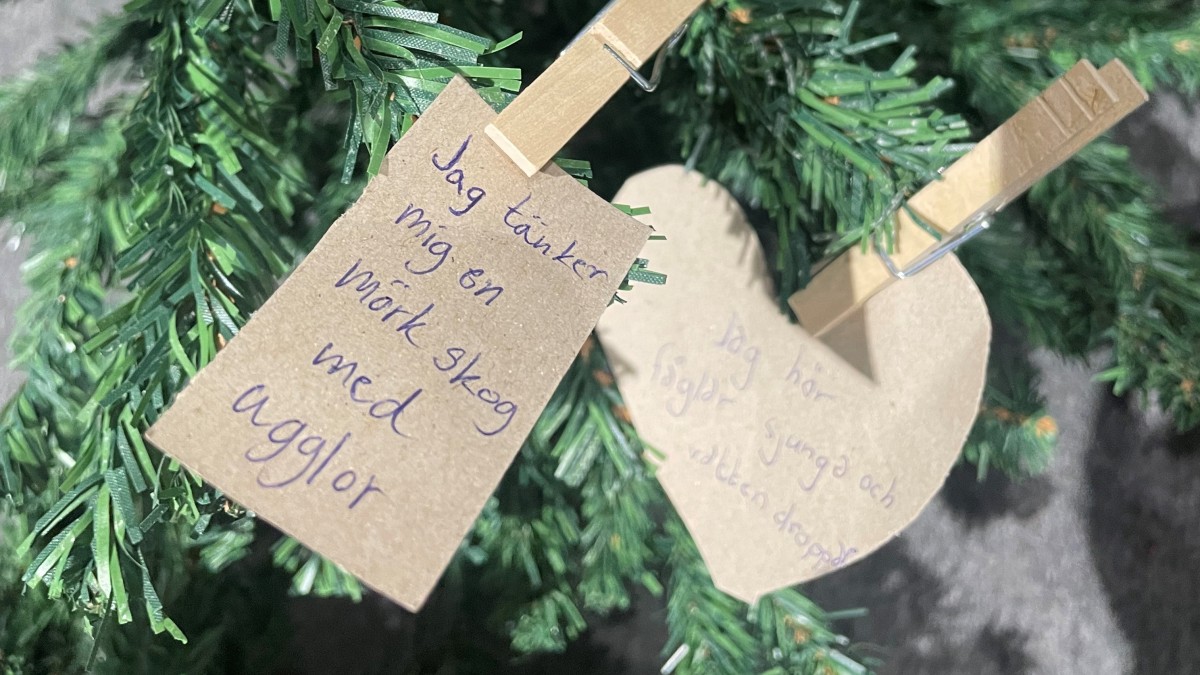 Jag tänker
mig en
mörk skog
med
ugglor
Jag hör
fåglar sjunga och
vatten droppar